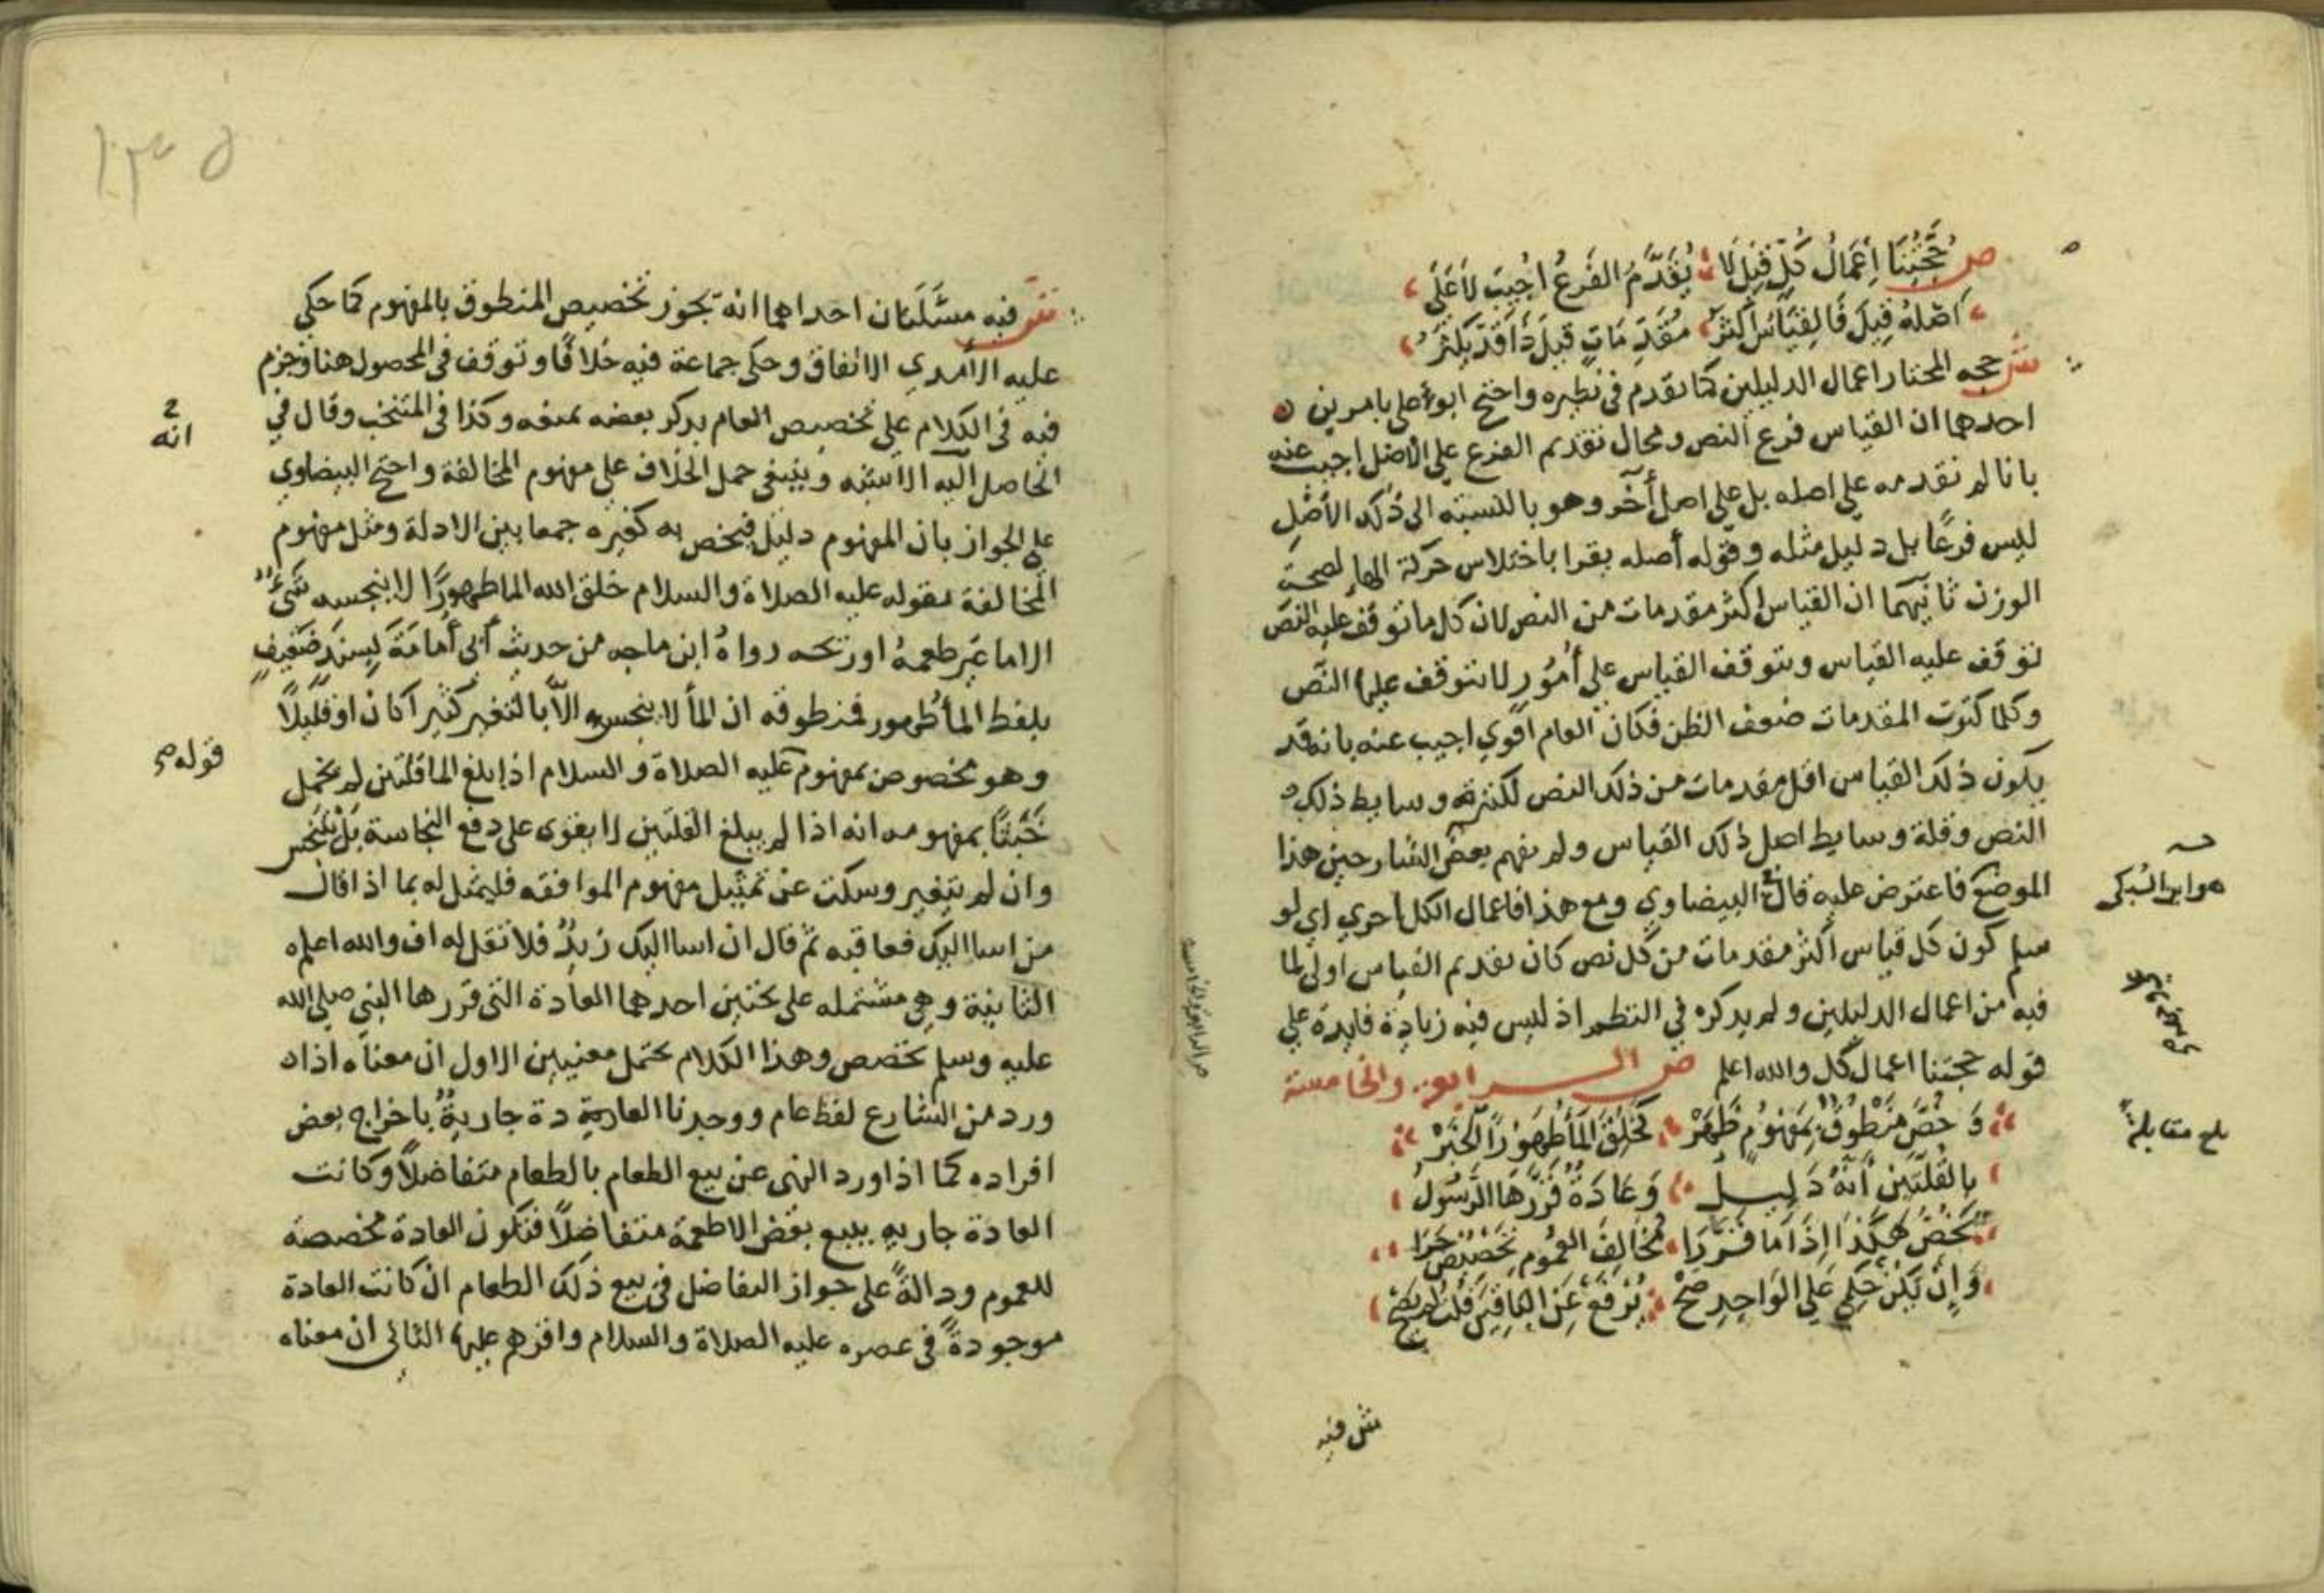 ص حُجَّتُنَا إِعْمَالُ كُلٍّ قِيلَ لَا يُقَدَّمُ الفَرْعُ أُجِيبَ لَا عَلَى
أَصْلِهِ قِيلَ فَالقِيَاسُ أَكْثَرُ مُقَدِّمَاتٍ قِيلَ ذَا قَدْ يَكْثُرُ
ش حجه المختار اعمال الدليلين كما تقدم في نظيره واحتج ابو على بامرين
احدهما ان القياس فرع النص ومحال تقديم الفرع علي الاصل اجيب عنه
بانا لم نقدمه علي اصله بل علي اصل آخر وهو بالنسبته الى ذلك الأصل
ليس فرعًا بل دليل مثله وقوله أصله يقرا باختلاس حركة الهاء لصحة
الوزن ثانيهما ان القياس اكثر مقدمات من النص لان كل ما توقف عليه النص
توقف عليه القياس ويتوقف القياس علي أُمُور لا يتوقف عليها النّص
وكلما كثرت المقدمات ضعف الظن فكان العام اقوي اجيب عنه بانه قد
يكون ذلك القياس اقل مقدمات من ذلك النص لكثرته وسايط ذلك
النص وقلة وسايط اصل ذلك القياس ولم يفهم بعض الشارحين هذا
الموضع فاعترض عليه قال البيضاوي ومع هذا فاعمال الكل احري اي لو
سلم كون كل قياس اكثر مقدمات من كل نص كان تقديم القياس اولى لما
فيه من اعمال الدليلين ولم يذكره في النظم اذ ليس فيه زيادة فايدة علي
قوله حجتنا اعمال كل والله اعلم ص الرابعة والخامسة
وَخُصَّ مَنْطُوقٌ بِمَفْهُومٍ ظَهَرْ كَخُلِقَ المَاءُ طَهُورًا الخَبَرْ
بِالقُلَّتَينِ أَنَّهُ دَلِيلُ وَعَادَةٌ قَرَّرَهَا الرَّسُولُ
تَخُصُّ هَكَذَا إِذَا مَا قَرَّرَا مُخَالِفَ العُمُومِ تَخْصِيصٌ جَرَا
وَإِنْ يَكُنْ حُكْمِي عَلَى الوَاحِدِ صَحْ يُرْفَعُ عَنِ البَاقِينَ قلت لم يصح
ش فيه
هو ابن السبكي
بلغ مقابلة
ش فيه مسئلتان احداهما انه يجوز تخصيص المنطوق بالمفهوم كما حكي
عليه الآمدي الاتفاق وحكى جماعة فيه خلافًا وتوقف في المحصول هنا وجزم
فيه في الكلام علي تخصيص العام بذكر بعضه بمنعه وكذا في المنتخب وقال في
انه
الحاصل انه الاشبه وينبغي حمل الخلاف علي مفهوم المخالفة واحتج البيضاوي
علي الجواز بان المفهوم دليل فيخص به كغيره جمعا بين الادلة ومثل مفهوم
المخالفة بقوله عليه الصلاة والسلام خلق الله الما طهورًا لا ينجسه شيءٌ
الا ما غيّر طعمهُ او ريحه رواهُ ابن ماجه من حديث أبي أمامَة بسندٍ ضعيفٍ
بلفظ الماء طهور فمنطوقه ان الماء لا ينجس الاّ بالتغير كثيرا كان او قليلًا
وهو مخصوص بمفهوم عليه الصلاة والسلام اذا بلغ الما قلتين لم يحمل
قوله صح
خَبَثًا بمفهومه انه اذا لم يبلغ القلتين لا يقوى على دفع النجاسة بَلْ يَنْجس
وان لم يتغير وسكت عن تمثيل مفهوم الموافقه فليمثل له بما اذا قال
من اسا اليك فعاقبه ثم قال ان اسا اليك زيدٌ فلا تقل له اف والله اعلم
الثانية وهي مشتمله على بحثين احدهما العادة التي قررها النبي صلي الله
عليه وسلم تخصص وهذا الكلام يحتمل معنيين الاول ان معناه اذا
ورد من الشارع لفظ عام ووجدنا العادة جاريةٌ باخراج بعض
افراده كما اذا ورد النهى عن بيع الطعام بالطعام متفاضلًا وكانت
العادة جاريه ببيع بعض الاطعمة متفاضلًا فتكون العادة مخصصة
للعموم ودالةً على جواز التفاضل في بيع ذلك الطعام ان كانت العادة
موجودةً في عصره عليه الصلاة والسلام واقرهم عليها الثاني ان معناه